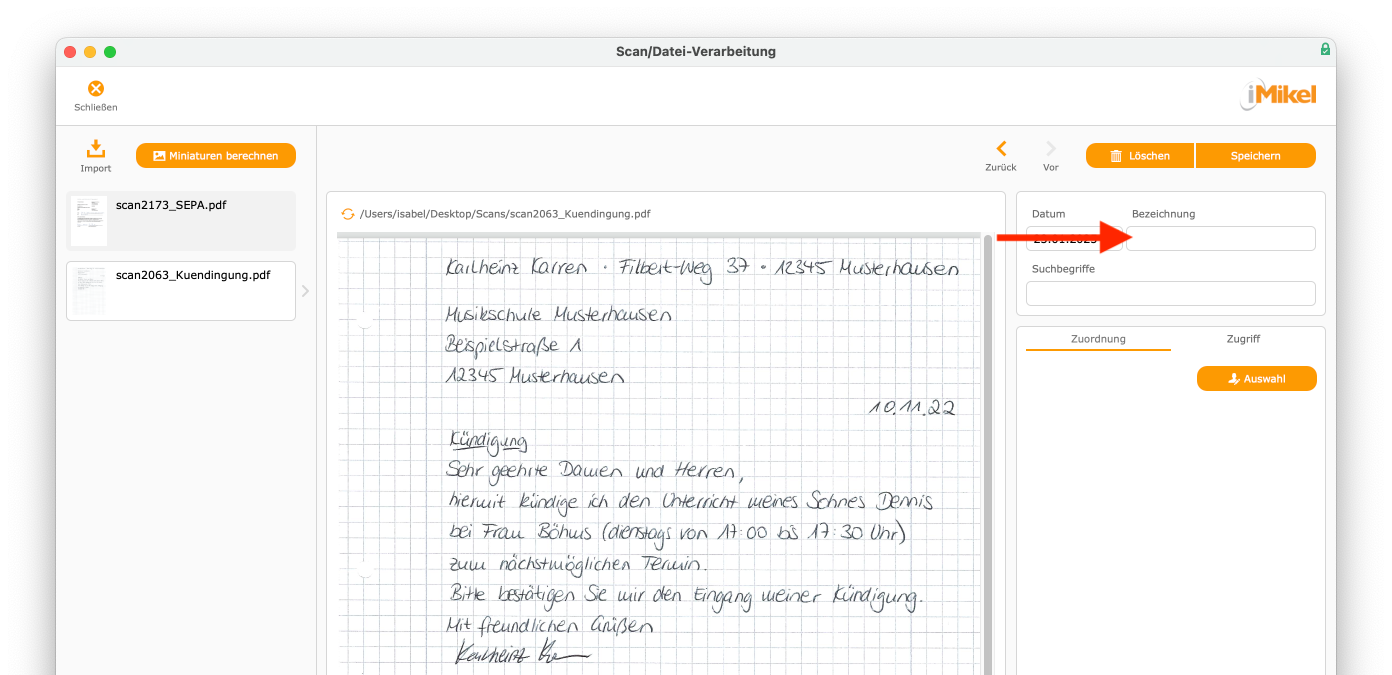 Scan/Datei-Verarbeitung
Schließen
iMikel
Import
Miniaturen berechnen
Zurück
Vor
Löschen
Speichern
scan2173_SEPA.pdf
scan2063_Kuendingung.pdf
/Users/isabel/Desktop/Scans/scan2063_Kuendingung.pdf
Karlheinz Karren · Filbert-Weg 37 · 12345 Musterhausen
Musikschule Musterhausen
Beispielstraße 1
12345 Musterhausen
10.11.22
Kündigung
Sehr geehrte Damen und Herren,
hiermit kündige ich den Unterricht meines Sohnes Dennis
bei Frau Böhms (dienstags von 17:00 bis 17:30 Uhr)
zum nächstmöglichen Termin.
Bitte bestätigen Sie mir den Eingang meiner Kündigung.
Mit freundlichen Grüßen
Karlheinz
Datum
Bezeichnung
Suchbegriffe
Zuordnung
Zugriff
Auswahl